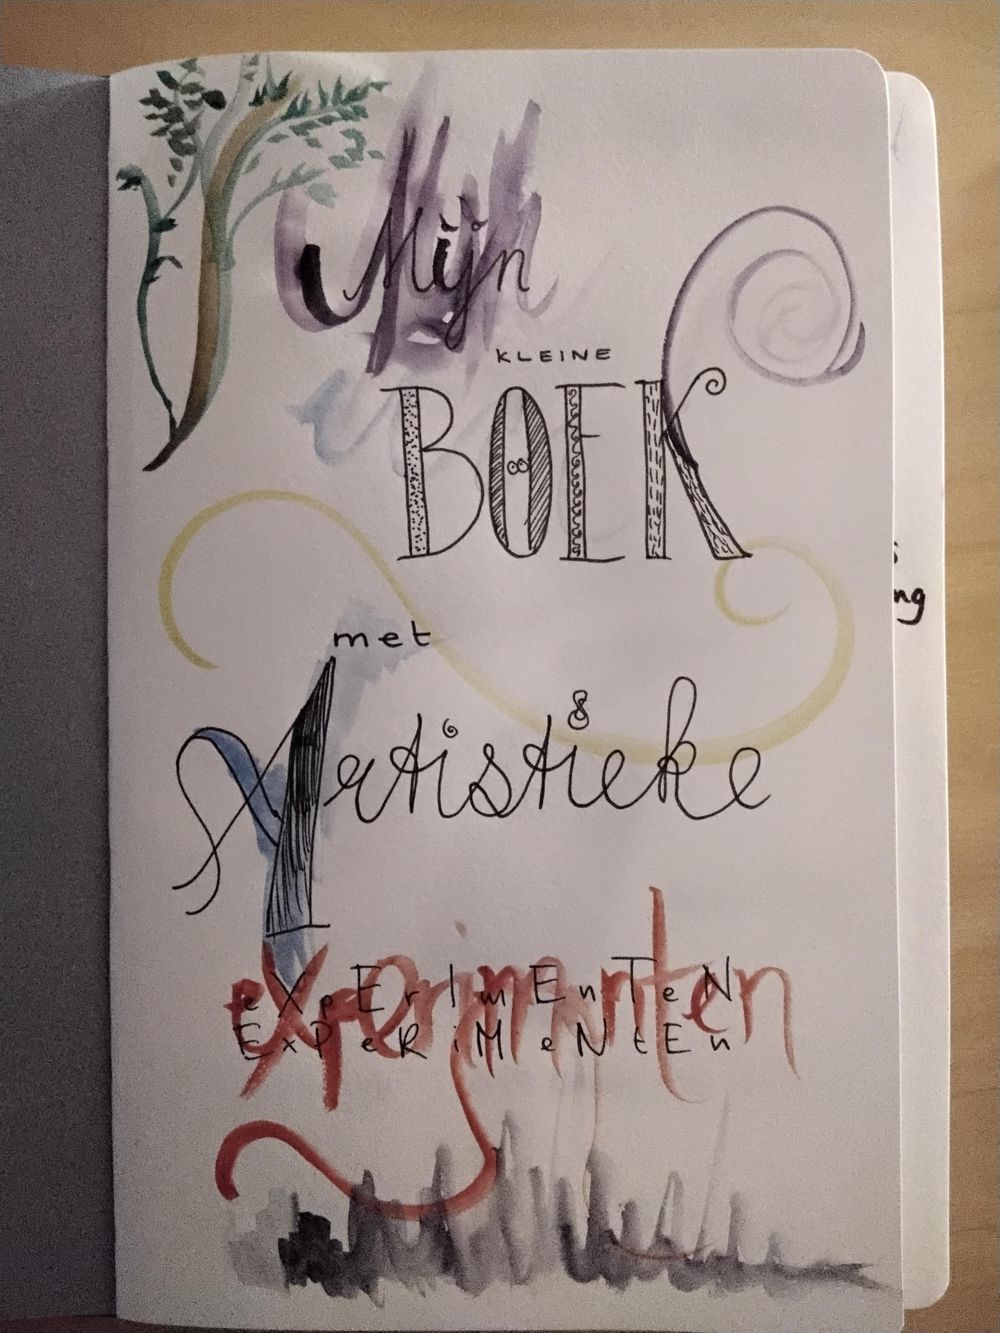 Mijn
KLEINE
BOEK
met
Artistieke
experimenten
eXpErImEnTeN
ExPeRiMeNtEn
ng